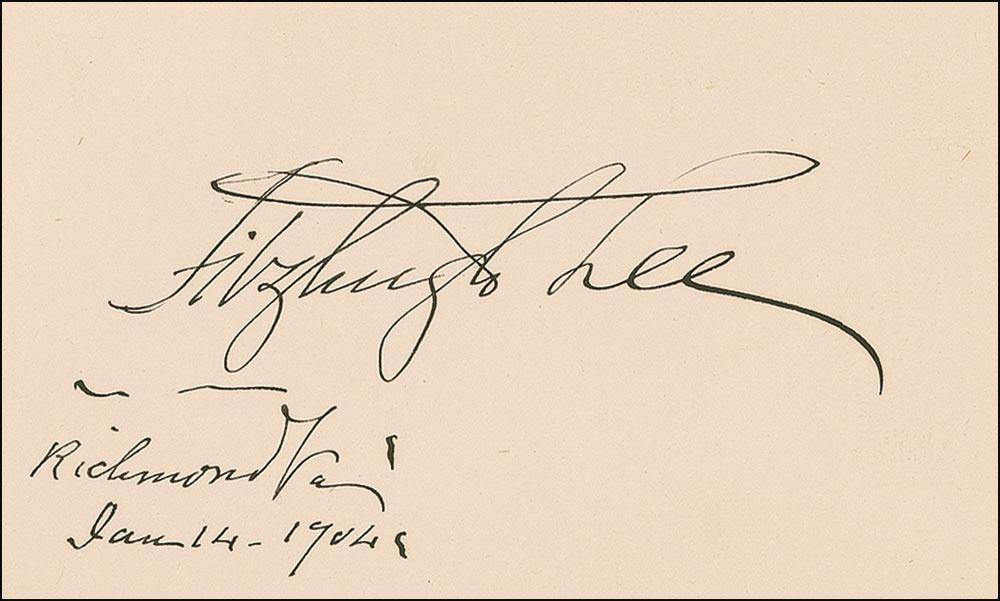 Fitzhugh Lee
Richmond Va
Jan 14 - 1904